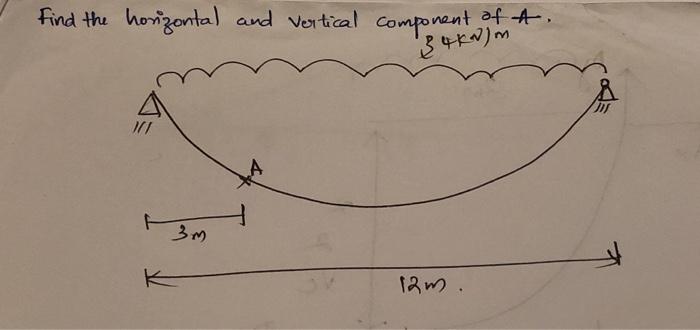 Find the horizontal and vertical component of A.
4kN/m
B
A
3m
12m.